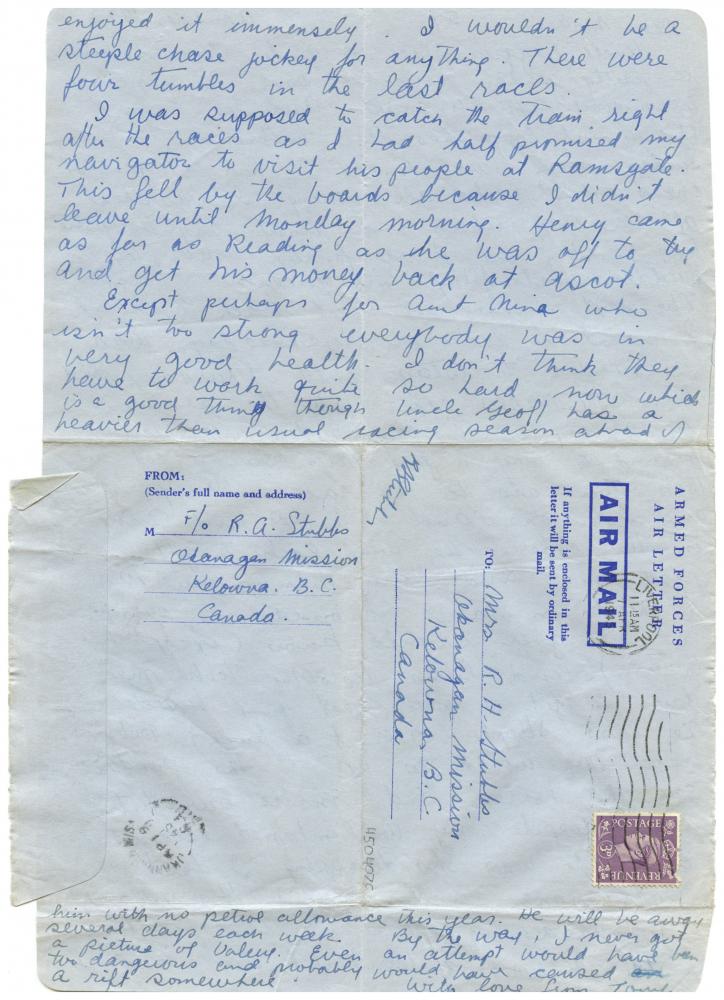 enjoyed it immensely. I wouldn't be a
steeple chase jockey for anything. There were
four tumbles in the last races.
I was supposed to catch the train right
after the races as I had half promised my
navigator to visit his people at Ramsgate.
This fell by the boards because I didn't
leave until Monday morning. Henry came
as far as Reading as he was off to try
and get his money back at ascot.
Except perhaps for Aunt Nina who
isn't too strong everybody was in
very good health. I don't think they
have to work quite so hard now which
is a good thing though Uncle Geoff has a
heavier than usual racing season ahead of
FROM:
(Sender's full name and address)
M F/o R. A. Stubbs
Okanagan Mission
Kelowna. B.C.
Canada.
ARMED FORCES
AIR LETTER
AIR MAIL
If anything is enclosed in this
letter it will be sent by ordinary
mail.
LIVERPOOL
11 15 AM
TO: Mrs R. H. Stubbs
Okanagan Mission
Kelowna, B.C.
Canada
POSTAGE
3D
REVENUE
him with no petrol allowance this year. He will be away
several days each week. By the way, I never got
a picture of Valery. Even an attempt would have been
too dangerous and probably would have caused
a rift somewhere.
With love from